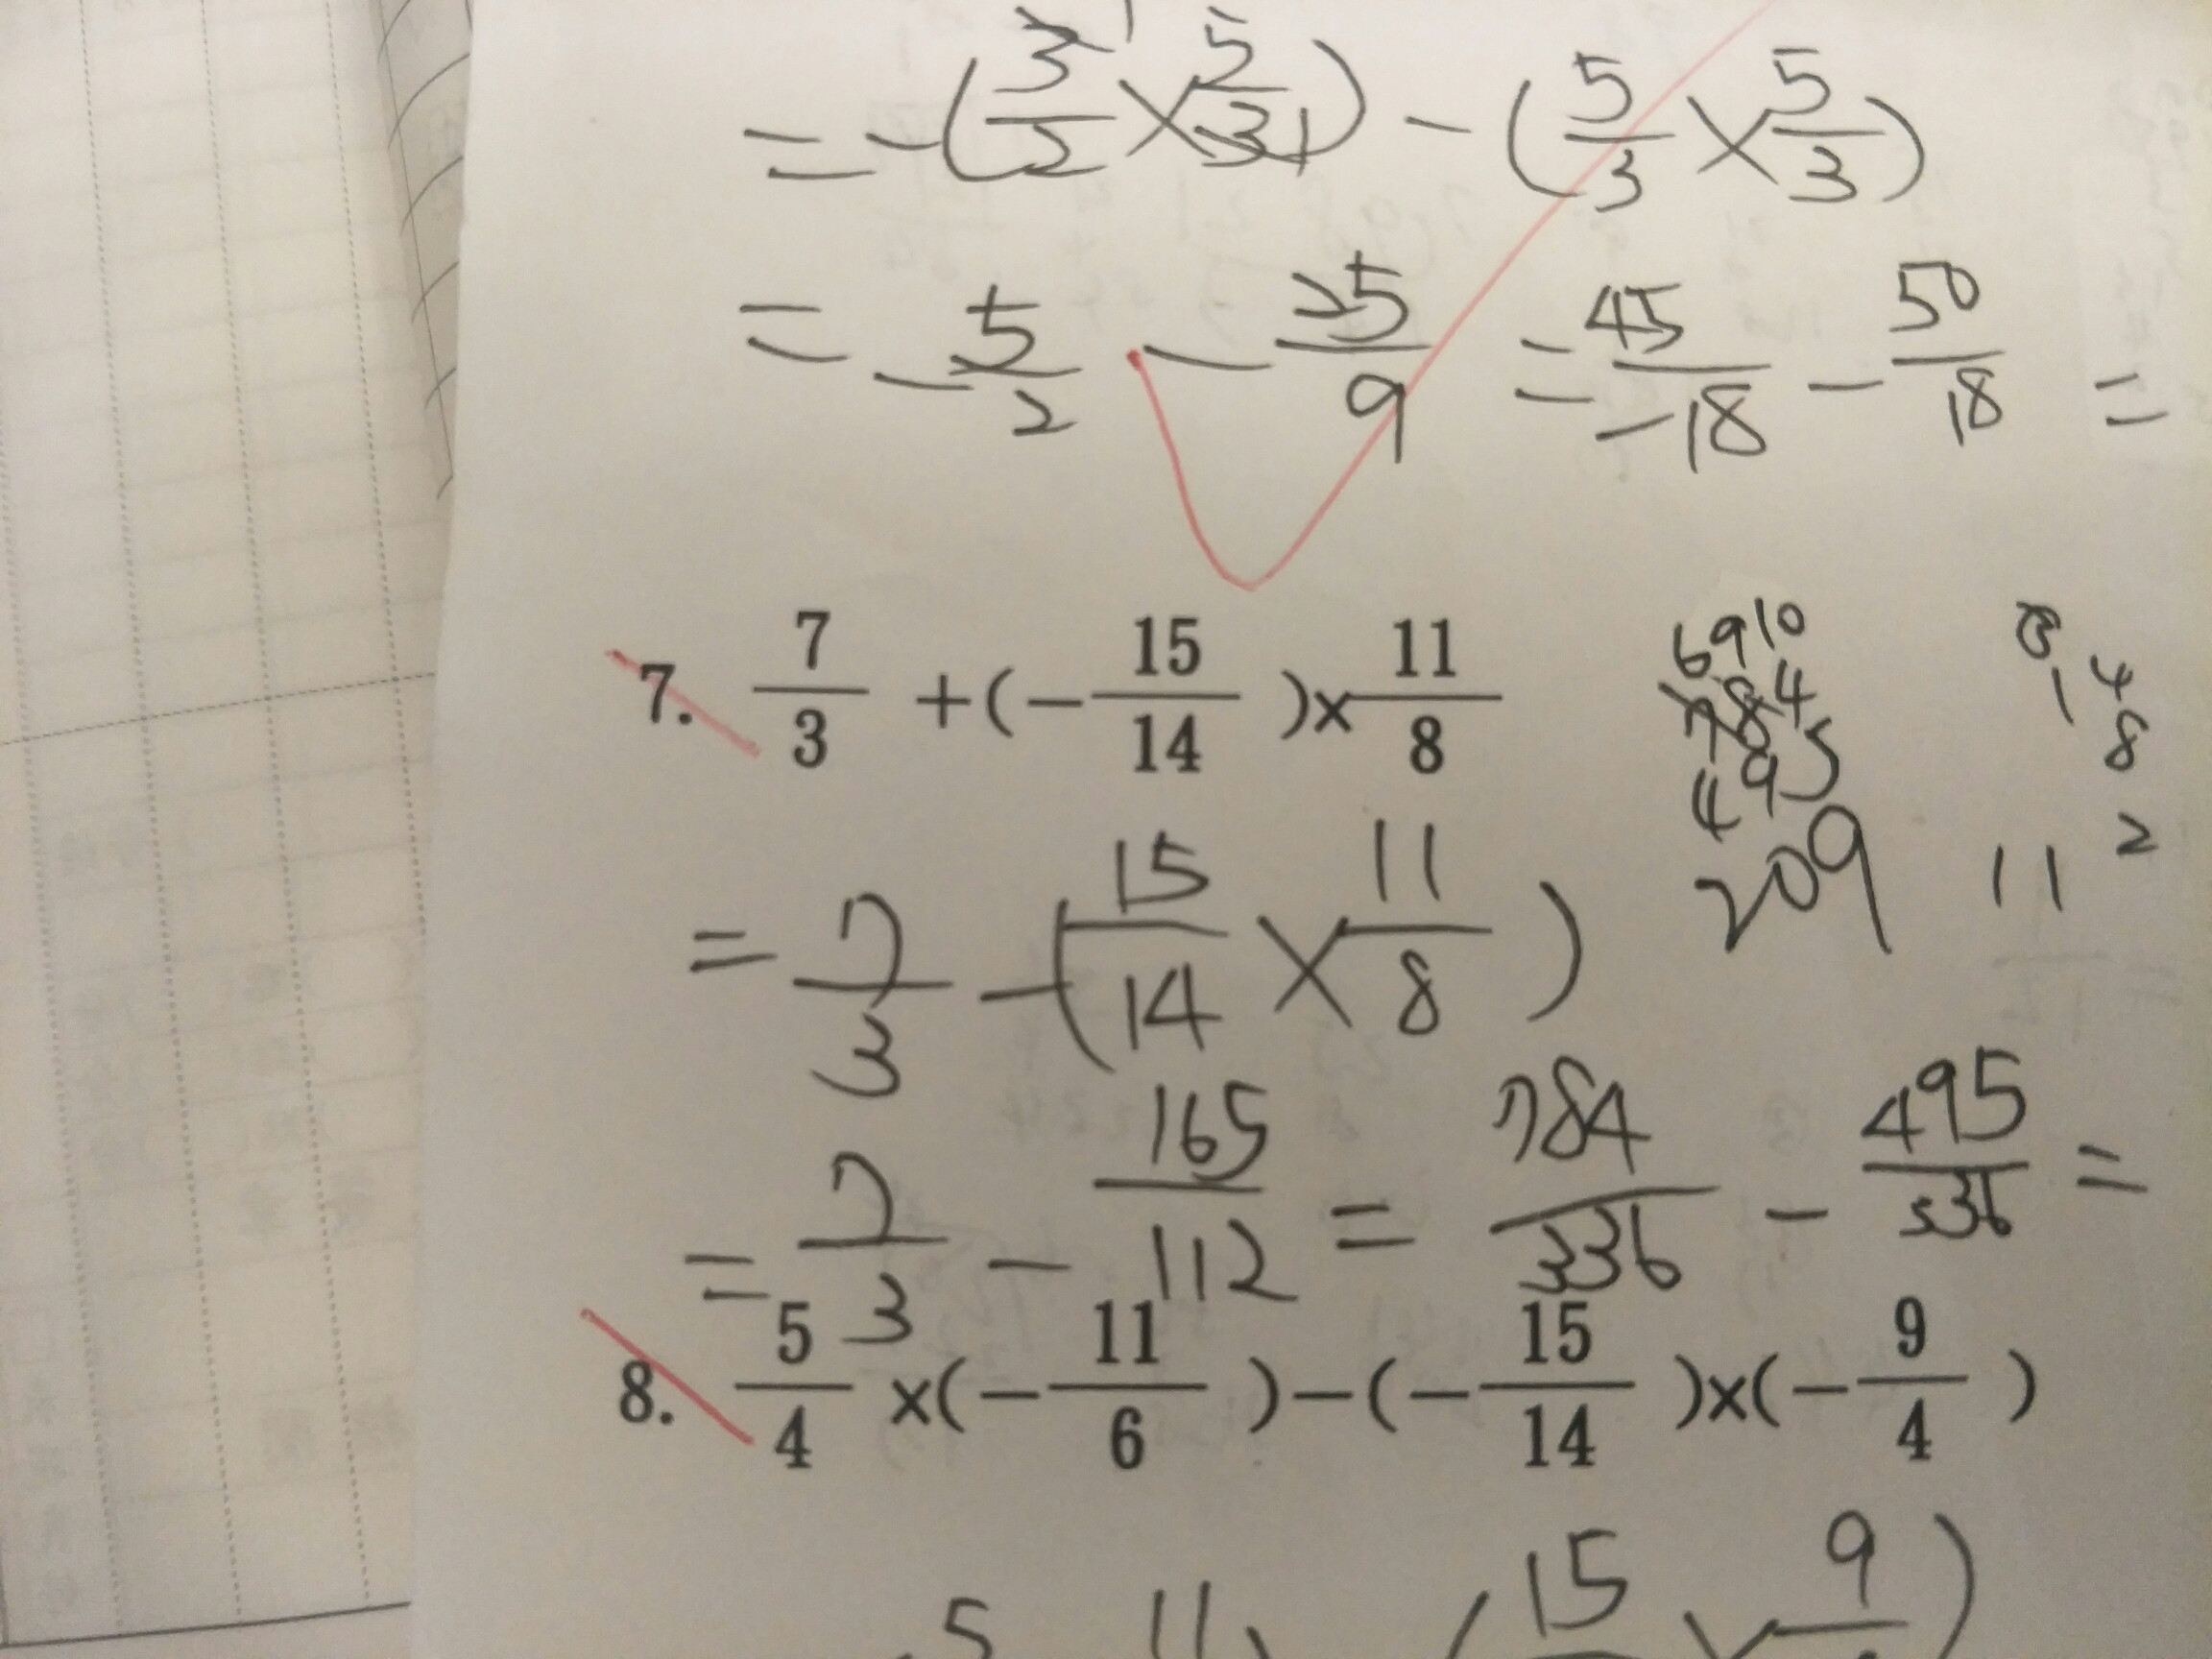 = -(3/2 × 5/3 1) - (5/3 × 5/3)
= -5/2 - 25/9 = 45/-18 - 50/18 =
7. 7/3 +(-15/14)×11/8
6 9 10
784
495
209
8
1 4
8
2
11
= 7/3 -(15/14 × 11/8)
= 7/3 - 165/112 = 784/336 - 495/336 =
8. 5/4 ×(-11/6)-(-15/14)×(-9/4)
5 11) (15 × 9)